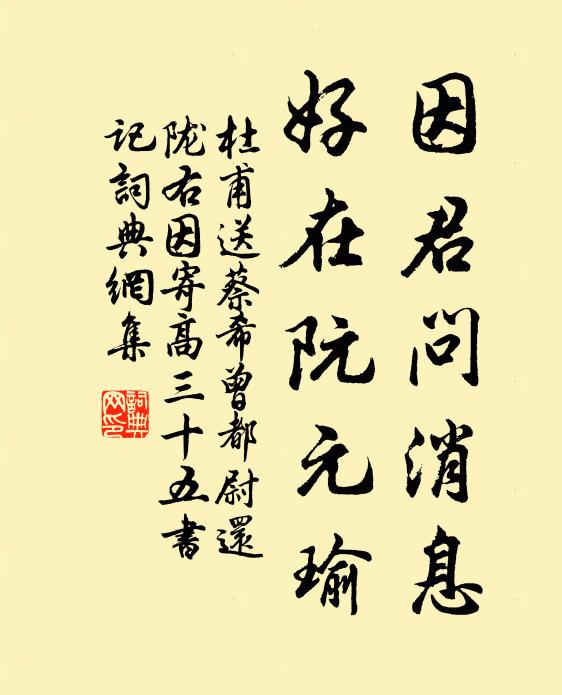 因君问消息
好在阮元瑜
杜甫送蔡希曾都尉還
陇右因寄高三十五書
记詞典網集
詞典
网印